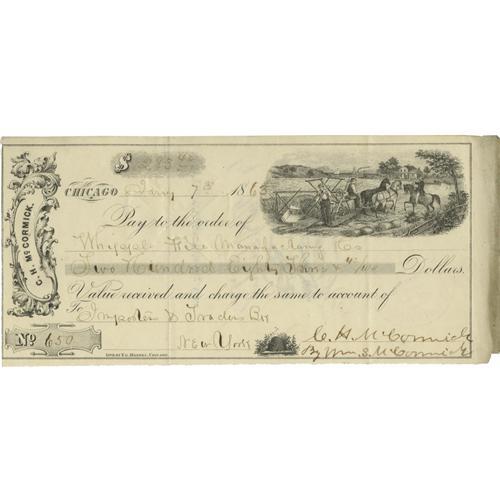 $283.40
C. H. McCORMICK.
CHICAGO Jany 7th 186
Pay to the order of
File Manufacturing Co
Two Hundred Eighty Three & 40/100 Dollars.
Value received and charge the same to account of
To Importers & Traders Bk
New York
C. H. McCormick
By Wm. S. McCormick
No 650